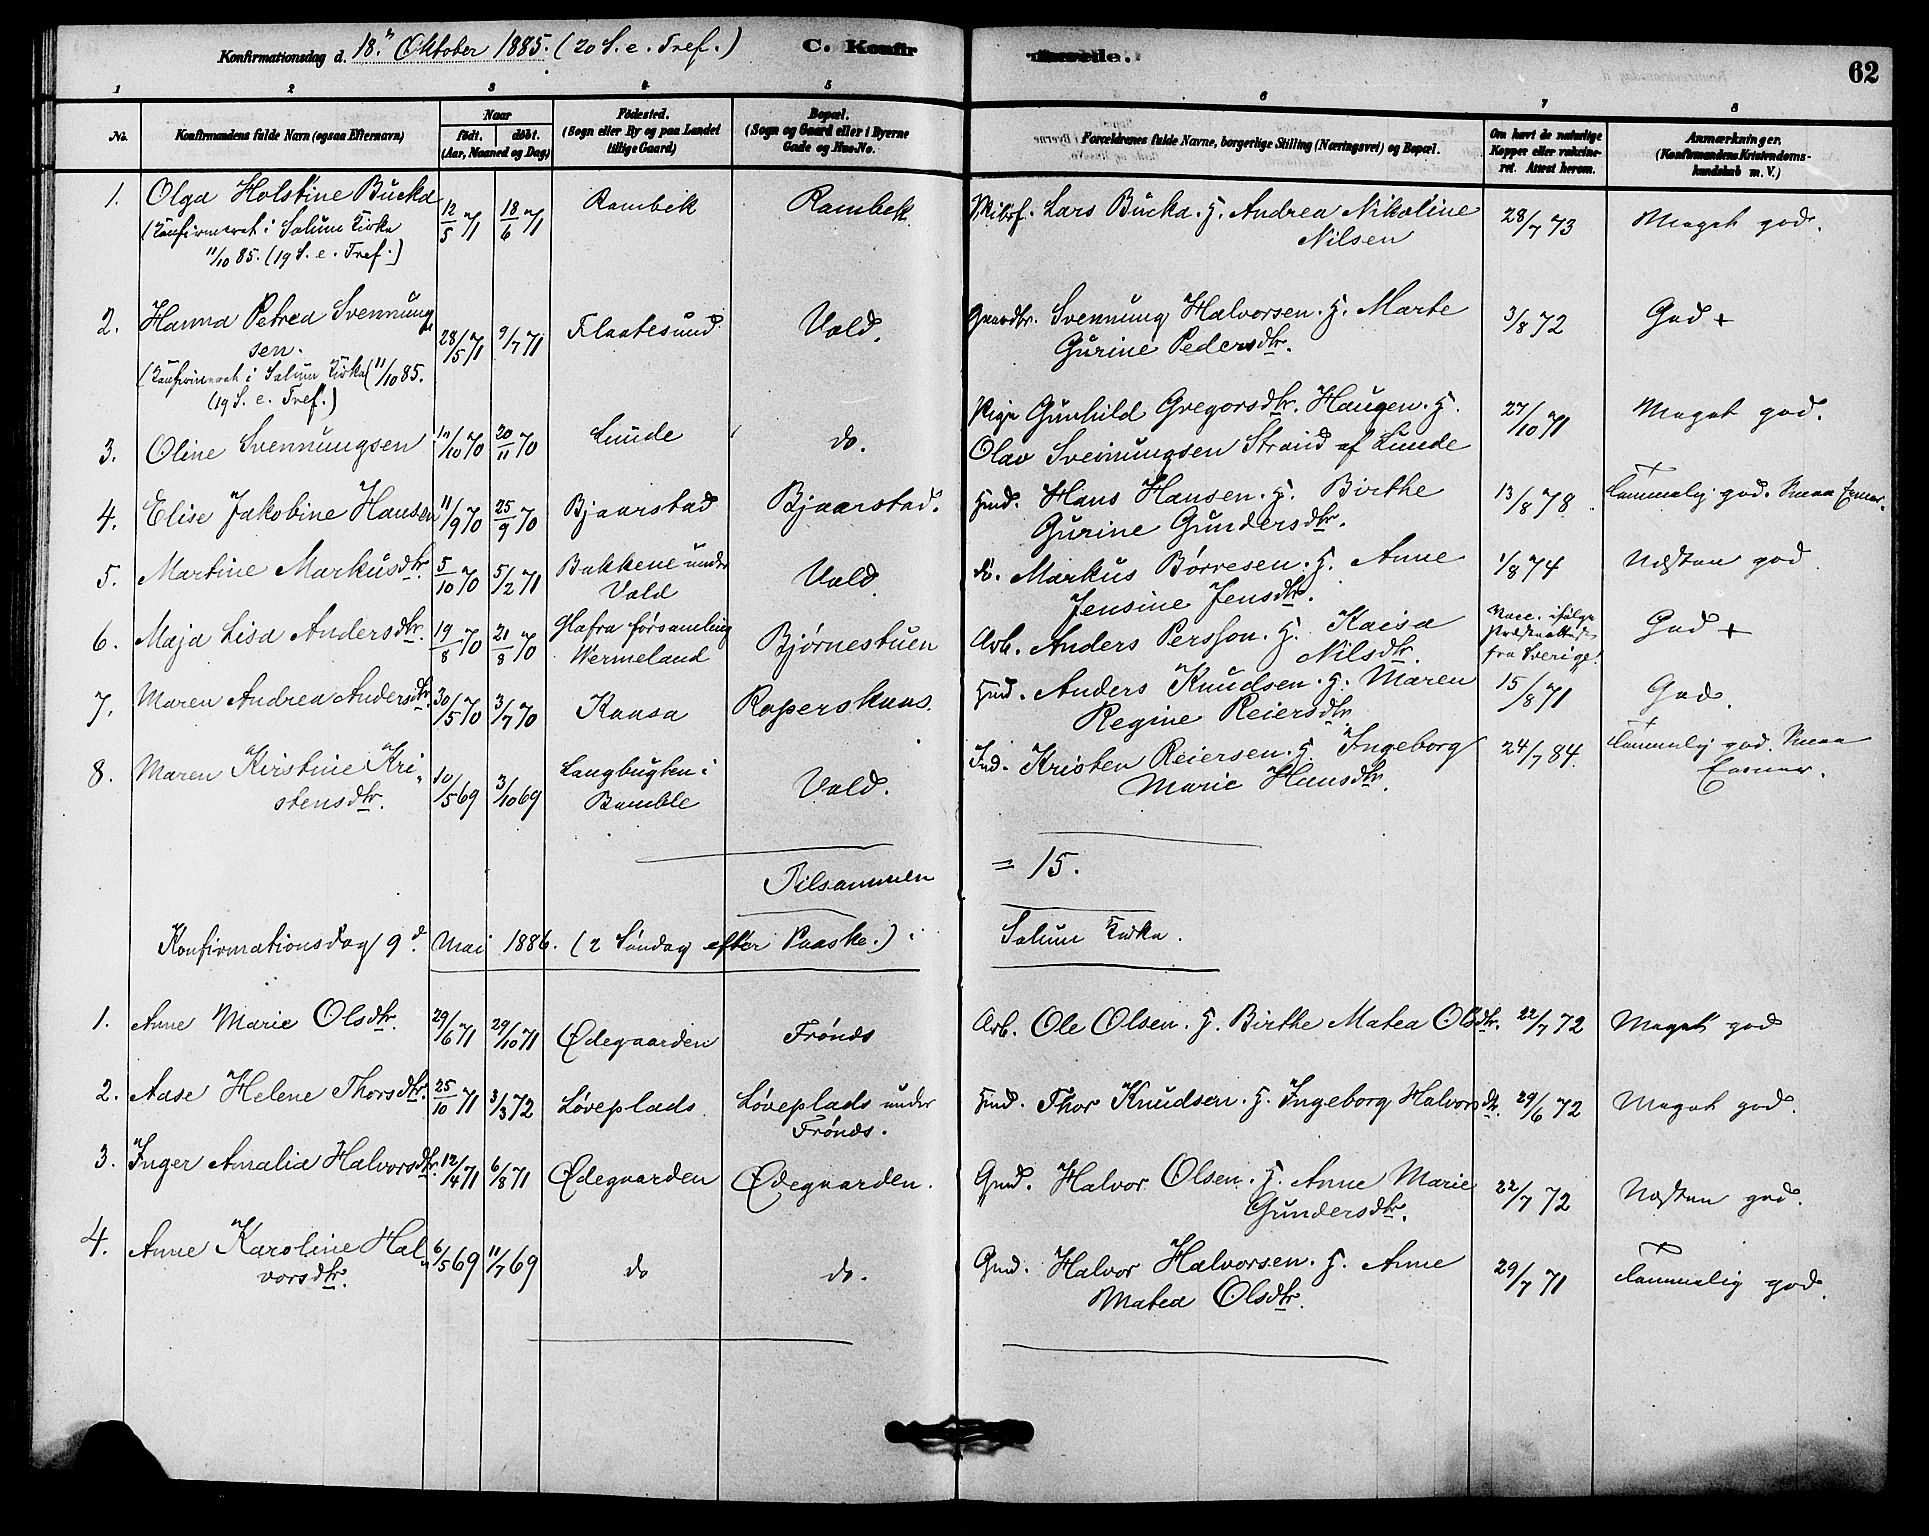 Konfirmationsdag d. 18. Oktober 1885. (20 S. e. Tref.) C. Konfir
62
1 2 3 4 5 6 7 8
No. Konfirmandens fulde Navn (ogsaa Efternavn)
Naar
født. døbt.
(Aar, Maaned og Dag)
Fødested.
(Sogn eller By og paa Landet
tillige Gaard)
Bopæl.
(Sogn og Gaard eller i Byerne
Gade og Hus-No.
Forældrenes fulde Navne, borgerlige Stilling (Næringsvei) og Bopæl.
Om havt de naturlige
Kopper eller vakcine-
ret. Attest herom.
Anmærkninger.
(Konfirmandens Kristendoms-
kundskab m. V.)
1. Olga Holstine Bucka 12/5 71 18/6 71 Rambek Rambek Lars Bucka. H. Andrea Nikoline 28/7 73 Meget god.
(Konfirmeret i Solum Kirke Nilsen
11/10 85. (19 S. e. Tref.)
2. Hanna Petrea Svennung 28/5 71 9/7 71 Flaatesund Vold. Svennung Halvorsen. H. Marte 3/8 72 God +
sen. Gurine Pedersdtr.
(Konfirmeret i Solum Kirke (11/10 85.
(19 S. e. Tref.)
3. Oline Svennungsen /10 70 20/11 70 Lunde do. Pige Gunhild Gregorsdtr. Haugen. H. 27/10 71 Meget god.
Olav Sveinungsen Strand af Lunde
4. Elise Jakobine Hansen 11/9 70 25/9 70 Bjaarstad Bjaarstad. Hmd. Hans Hansen. H. Birthe 13/8 78. Temmelig god. Smaa Evner.
Gurine Gundersdtr.
5. Martine Markusdtr. 5/10 70 5/2 71 Bakkene under Vold. do. Markus Børresen. H. Anne 1/8 74 Næsten god
Vold Jensine Jensdtr.
6. Maja Lisa Andersdtr. 19/8 70 21/8 70 Hafra församling Bjørnestuen Arb. Anders Persson. H. Kaisa Vacc. ifølge God +
Wermeland Nilsdtr. Præsteattest
fra Sverige.
7. Maren Andrea Andersdtr. 30/5 70 3/7 70 Kaasa Raperskaas. Hmd. Anders Knudsen. H. Maren 15/8 71 God.
Regine Reiersdtr.
8. Maren Kirstine Kri- 10/5 69 3/10 69 Langbugten i Vold. Ind. Kristen Reiersen. H. Ingeborg 24/7 84. Temmelig god. Smaa
stensdtr. Bamble Marie Hansdtr. Evner.
Tilsammen = 15.
Konfirmationsdag 9d Mai 1886. (2 Søndag efter Paaske.) Solum Kirke.
1. Anne Marie Olsdtr. 29/6 71 29/10 71 Ødegaarden Frønds Arb. Ole Olsen. H. Birthe Matea Olsdtr. 22/7 72 Meget god
2. Aase Helene Thorsdtr. 25/10 71 3/3 72 Løveplads. Løveplads under Hmd. Thor Knudsen. H. Ingeborg Halvorsdtr. 29/6 72 Meget god.
Frønds.
3. Inger Amalia Halvorsdtr. 12/4 71 6/8 71 Ødegaarden Ødegaarden. Gmd. Halvor Olsen. H. Anne Marie 22/7 72 Næsten god.
Gundersdtr.
4. Anne Karoline Hal- 6/5 69 11/7 69 do do. Gmd. Halvor Halvorsen. H. Anne 29/7 71 Temmelig god.
vorsdtr. Matea Olsdtr.